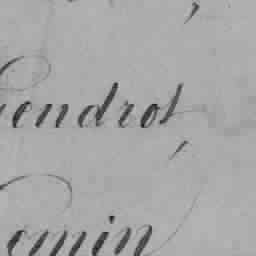 Gendrot,
Comin